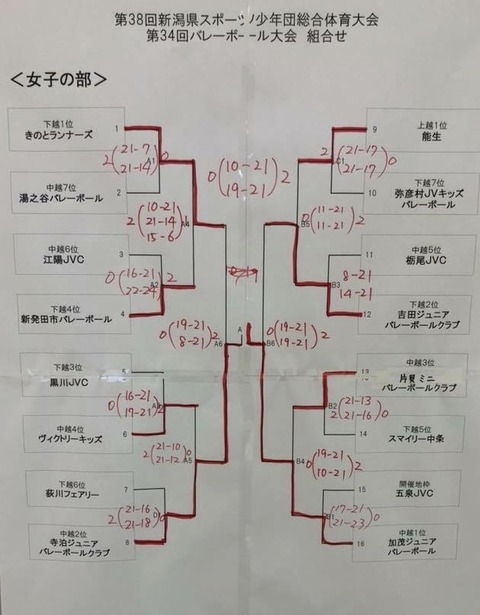 第38回新潟県スポーツ少年団総合体育大会
第34回バレーボール大会 組合せ
<女子の部>
下越1位
きのとランナーズ
1
中越7位
湯之谷バレーボール
2
中越6位
江陽JVC
3
下越4位
新発田市バレーボール
4
下越3位
黒川JVC
5
中越4位
ヴィクトリーキッズ
6
下越6位
荻川フェアリー
7
中越2位
寺泊ジュニア
バレーボールクラブ
8
2(21-7 21-14)0
A1
2(10-21 21-14 15-6)
A4
0(16-21 22-24)2
A2
0(19-21 8-21)2
A6
0(16-21 19-21)2
2(21-10 21-12)0
A5
2(21-16 21-18)0
0(10-21 19-21)2
A
上越1位
能生
9
中越7位
弥彦村JVキッズ
バレーボール
10
中越5位
栃尾JVC
11
下越2位
吉田ジュニア
バレーボールクラブ
12
中越3位
片貝ミニ
バレーボールクラブ
13
下越5位
スマイリー中条
14
開催地枠
五泉JVC
15
中越1位
加茂ジュニア
バレーボール
16
2(21-17 21-17)0
C1
0(11-21 11-21)2
B5
8-21
14-21
B3
0(19-21 19-21)2
B6
2(21-13 21-16)0
B2
0(19-21 10-21)2
B4
(17-21 21-23)0
B1